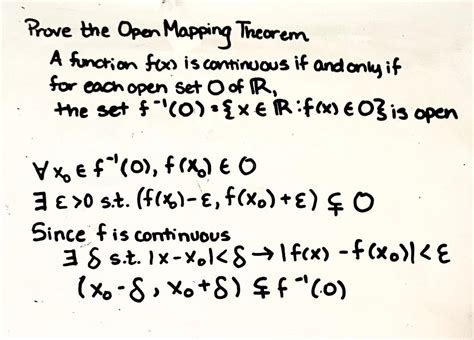 Prove the Open Mapping Theorem
A function f(x) is continuous if and only if
for each open set O of ℝ,
the set f⁻¹(O) = {x ∈ ℝ : f(x) ∈ O} is open
∀ x₀ ∈ f⁻¹(O), f(x₀) ∈ O
∃ ε>0 s.t. (f(x₀)-ε, f(x₀)+ε) ⊊ O
Since f is continuous
∃ δ s.t. |x-x₀|<δ → |f(x) - f(x₀)|<ε
(x₀-δ, x₀+δ) ⊊ f⁻¹(O)